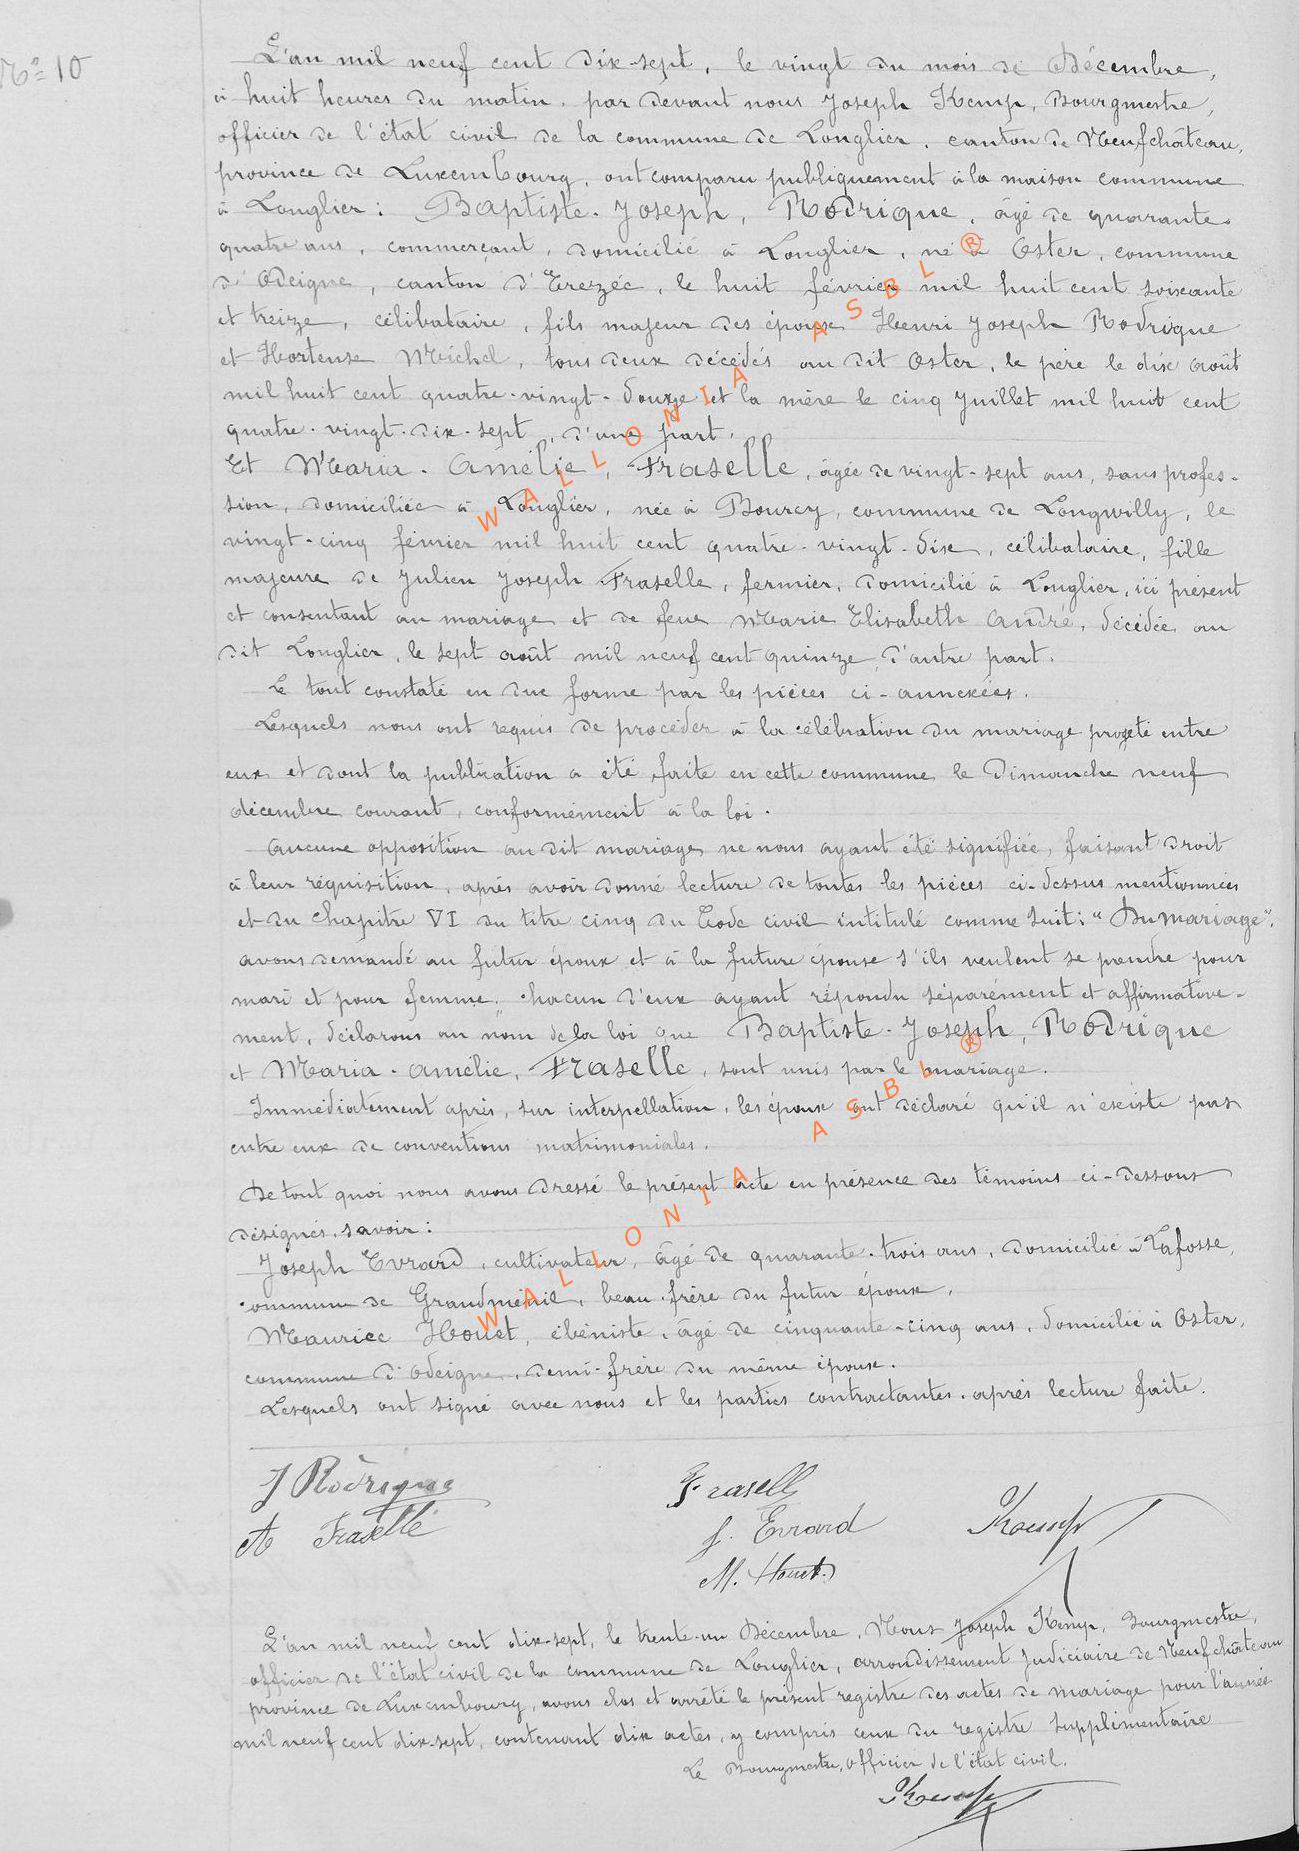 Nº 10
L'an mil neuf cent dix-sept, le vingt du mois de Décembre,
à huit heures du matin, par devant nous Joseph Kemp, Bourgmestre,
officier de l'état civil de la commune de Longlier, canton de Neufchâteau,
province de Luxembourg, ont comparu publiquement à la maison commune
à Longlier : Baptiste-Joseph, Rodrique, âgé de quarante-
quatre ans, commerçant, domicilié à Longlier, né à Oster, commune
d'Odeigne, canton d'Erezée, le huit février mil huit cent soixante
et treize, célibataire, fils majeur des époux Henri Joseph Rodrique
et Hortense Michel, tous deux décédés au dit Oster, le père le dix août
mil huit cent quatre-vingt-douze et la mère le cinq juillet mil huit cent
quatre-vingt-dix-sept, d'une part.
Et Maria-Amélie, Fraselle, âgée de vingt-sept ans, sans profes-
sion, domiciliée à Longlier, née à Bourcy, commune de Longwilly, le
vingt-cinq février mil huit cent quatre-vingt-dix, célibataire, fille
majeure de Julien Joseph Fraselle, fermier, domicilié à Longlier, ici présent
et consentant au mariage et de feue Marie Elisabeth André, décédée au
dit Longlier, le sept août mil neuf cent quinze, d'autre part.
Le tout constaté en due forme par les pièces ci-annexées.
Lesquels nous ont requis de procéder à la célébration du mariage projeté entre
eux et dont la publication a été faite en cette commune le Dimanche neuf
décembre courant, conformément à la loi.
Aucune opposition au dit mariage ne nous ayant été signifiée, faisant droit
à leur réquisition, après avoir donné lecture de toutes les pièces ci-dessus mentionnées
et du chapitre VI du titre cinq du Code civil intitulé comme suit : "Du mariage",
avons demandé au futur époux et à la future épouse s'ils veulent se prendre pour
mari et pour femme, chacun d'eux ayant répondu séparément et affirmative-
ment, déclarons au nom de la loi que Baptiste-Joseph, Rodrique
et Maria-Amélie, Fraselle, sont unis par le mariage.
Immédiatement après, sur interpellation, les époux ont déclaré qu'il n'existe pas
entre eux de conventions matrimoniales.
De tout quoi nous avons dressé le présent acte en présence des témoins ci-dessous
désignés, savoir :
Joseph Evrard, cultivateur, âgé de quarante-trois ans, domicilié à Lafosse,
commune de Grandménil, beau-frère du futur époux,
Maurice Houet, ébéniste, âgé de cinquante-cinq ans, domicilié à Oster,
commune d'Odeigne, demi-frère du même époux.
Lesquels ont signé avec nous et les parties contractantes, après lecture faite.
J Rodrique
Fraselle
A Fraselle
J. Evrard
Kemp
M. Houet
L'an mil neuf cent dix-sept, le trente-un Décembre, Nous Joseph Kemp, Bourgmestre,
officier de l'état civil de la commune de Longlier, arrondissement judiciaire de Neufchâteau
province de Luxembourg, avons clos et arrêté le présent registre des actes de mariage pour l'année
mil neuf cent dix-sept, contenant dix actes, y compris ceux du registre supplimentaire
Le Bourgmestre, officier de l'état civil.
Kemp
WALLONIA ASBL ®
WALLONIA ASBL ®